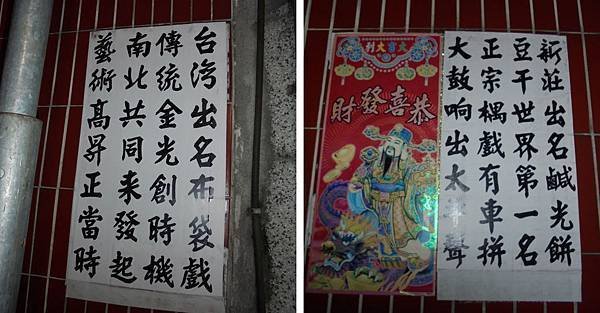 台湾出名布袋戲
傳統金光創時機
南北共同来發起
藝術高昇正當時
大富大利
恭喜發財
新莊出名鹹光餅
豆干世界第一名
正宗耦戲有車拼
大鼓响出太平聲